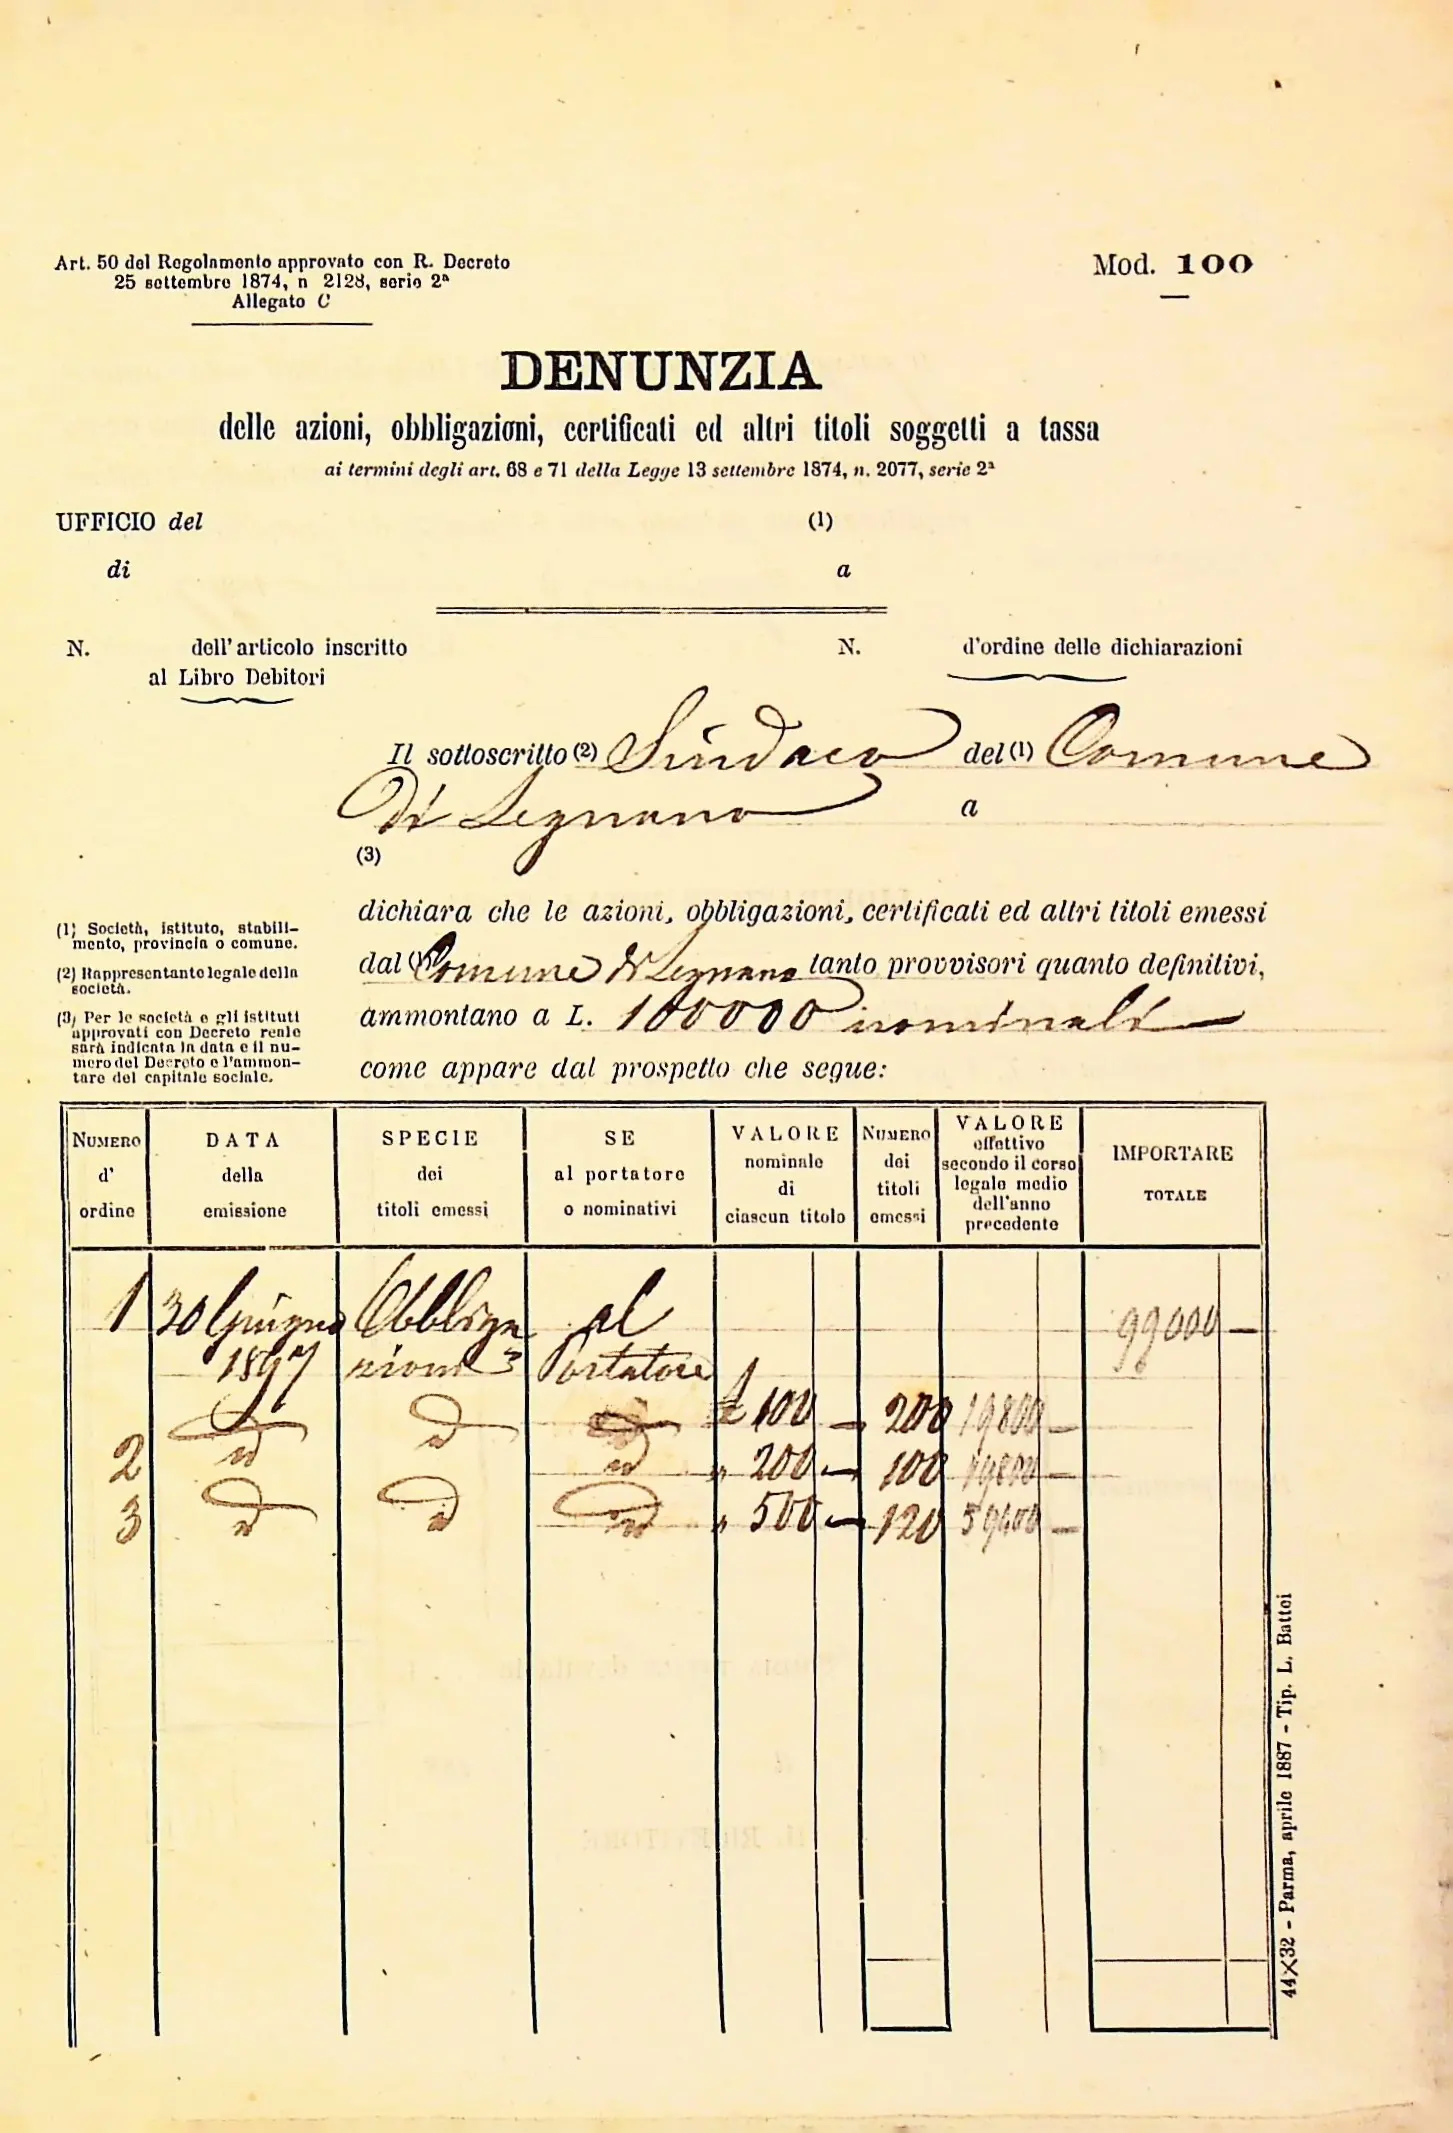 Art. 50 del Regolamento approvato con R. Decreto
25 settembre 1874, n 2128, serie 2ª
Allegato C
Mod. 100
DENUNZIA
delle azioni, obbligazioni, certificati ed altri titoli soggetti a tassa
ai termini degli art. 68 e 71 della Legge 13 settembre 1874, n. 2077, serie 2ª
UFFICIO del (1)
di a
N. dell'articolo inscritto
al Libro Debitori
N. d'ordine delle dichiarazioni
Il sottoscritto (2) Sindaco del (1) Comune
di Legnano a
(3)
dichiara che le azioni, obbligazioni, certificati ed altri titoli emessi
dal (1) Comune di Legnano tanto provvisori quanto definitivi,
ammontano a L. 100000 nominali
come appare dal prospetto che segue:
(1) Società, istituto, stabili-
mento, provincia o comune.
(2) Rappresentante legale della
società.
(3) Per le società e gli istituti
approvati con Decreto reale
sarà indicata la data e il nu-
mero del Decreto e l'ammon-
tare del capitale sociale.
NUMERO d' ordine
DATA della emissione
SPECIE dei titoli emessi
SE al portatore o nominativi
VALORE nominale di ciascun titolo
NUMERO dei titoli emessi
VALORE effettivo secondo il corso legale medio dell'anno precedente
IMPORTARE TOTALE
1 30 Giugno Obbliga al 99000 —
1897 zioni Portatore
£ 100 — 200 19800 —
2 d d d " 200 — 100 19800 —
3 d d d " 500 — 120 59400 —
44×32 - Parma, aprile 1887 - Tip. L. Battei